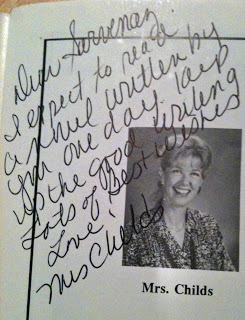 Dear Sarvenaz,
I expect to read
a novel written by
you one day. Keep
up the good writing
Lots of Best Wishes
Love!
Mrs Childs
Mrs. Childs